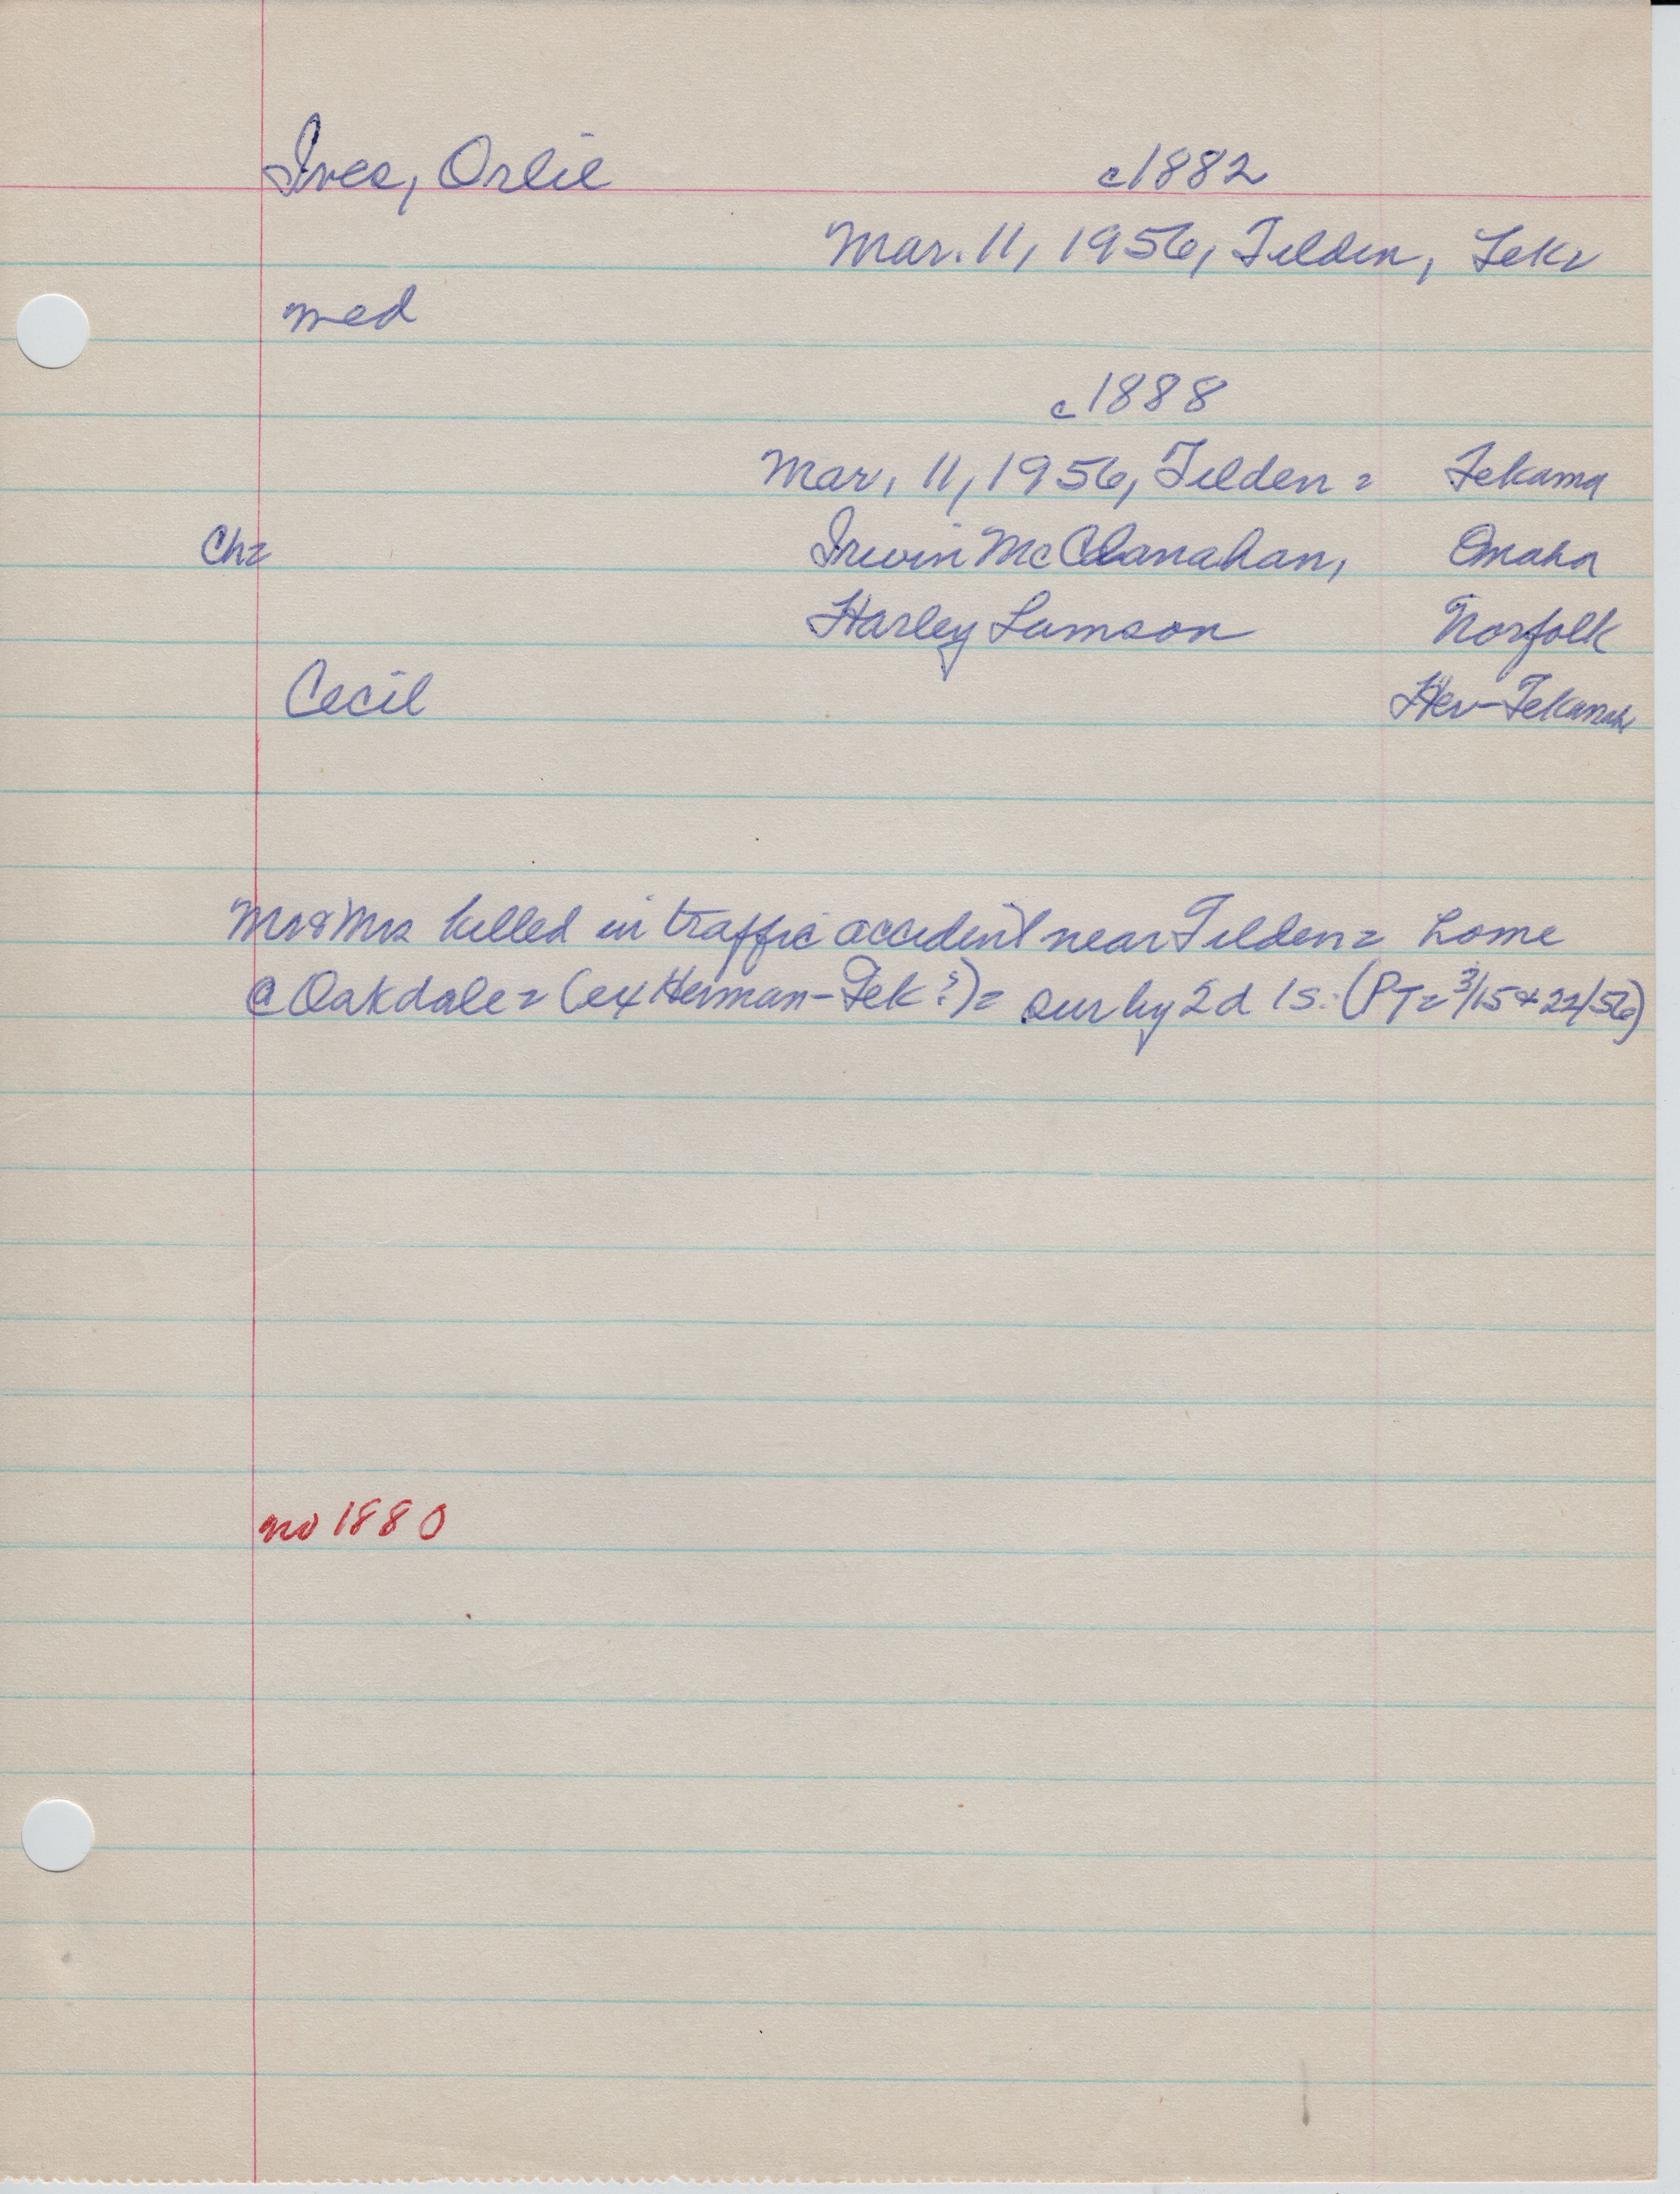 Ives, Orlie c1882
Mar. 11, 1956, Tilden, Tek=
med
c1888
Mar, 11, 1956, Tilden = Tekama
Ch= Irwin McClanahan, Omaha
Harley Lamson Norfolk
Cecil Her-Tekamah
Mr & Mrs killed in traffic accident near Tilden = home
@ Oakdale = (ex Herman-Tek?) = sur by 2d 1s. (PT = 3/15 + 22/56)
no 1880